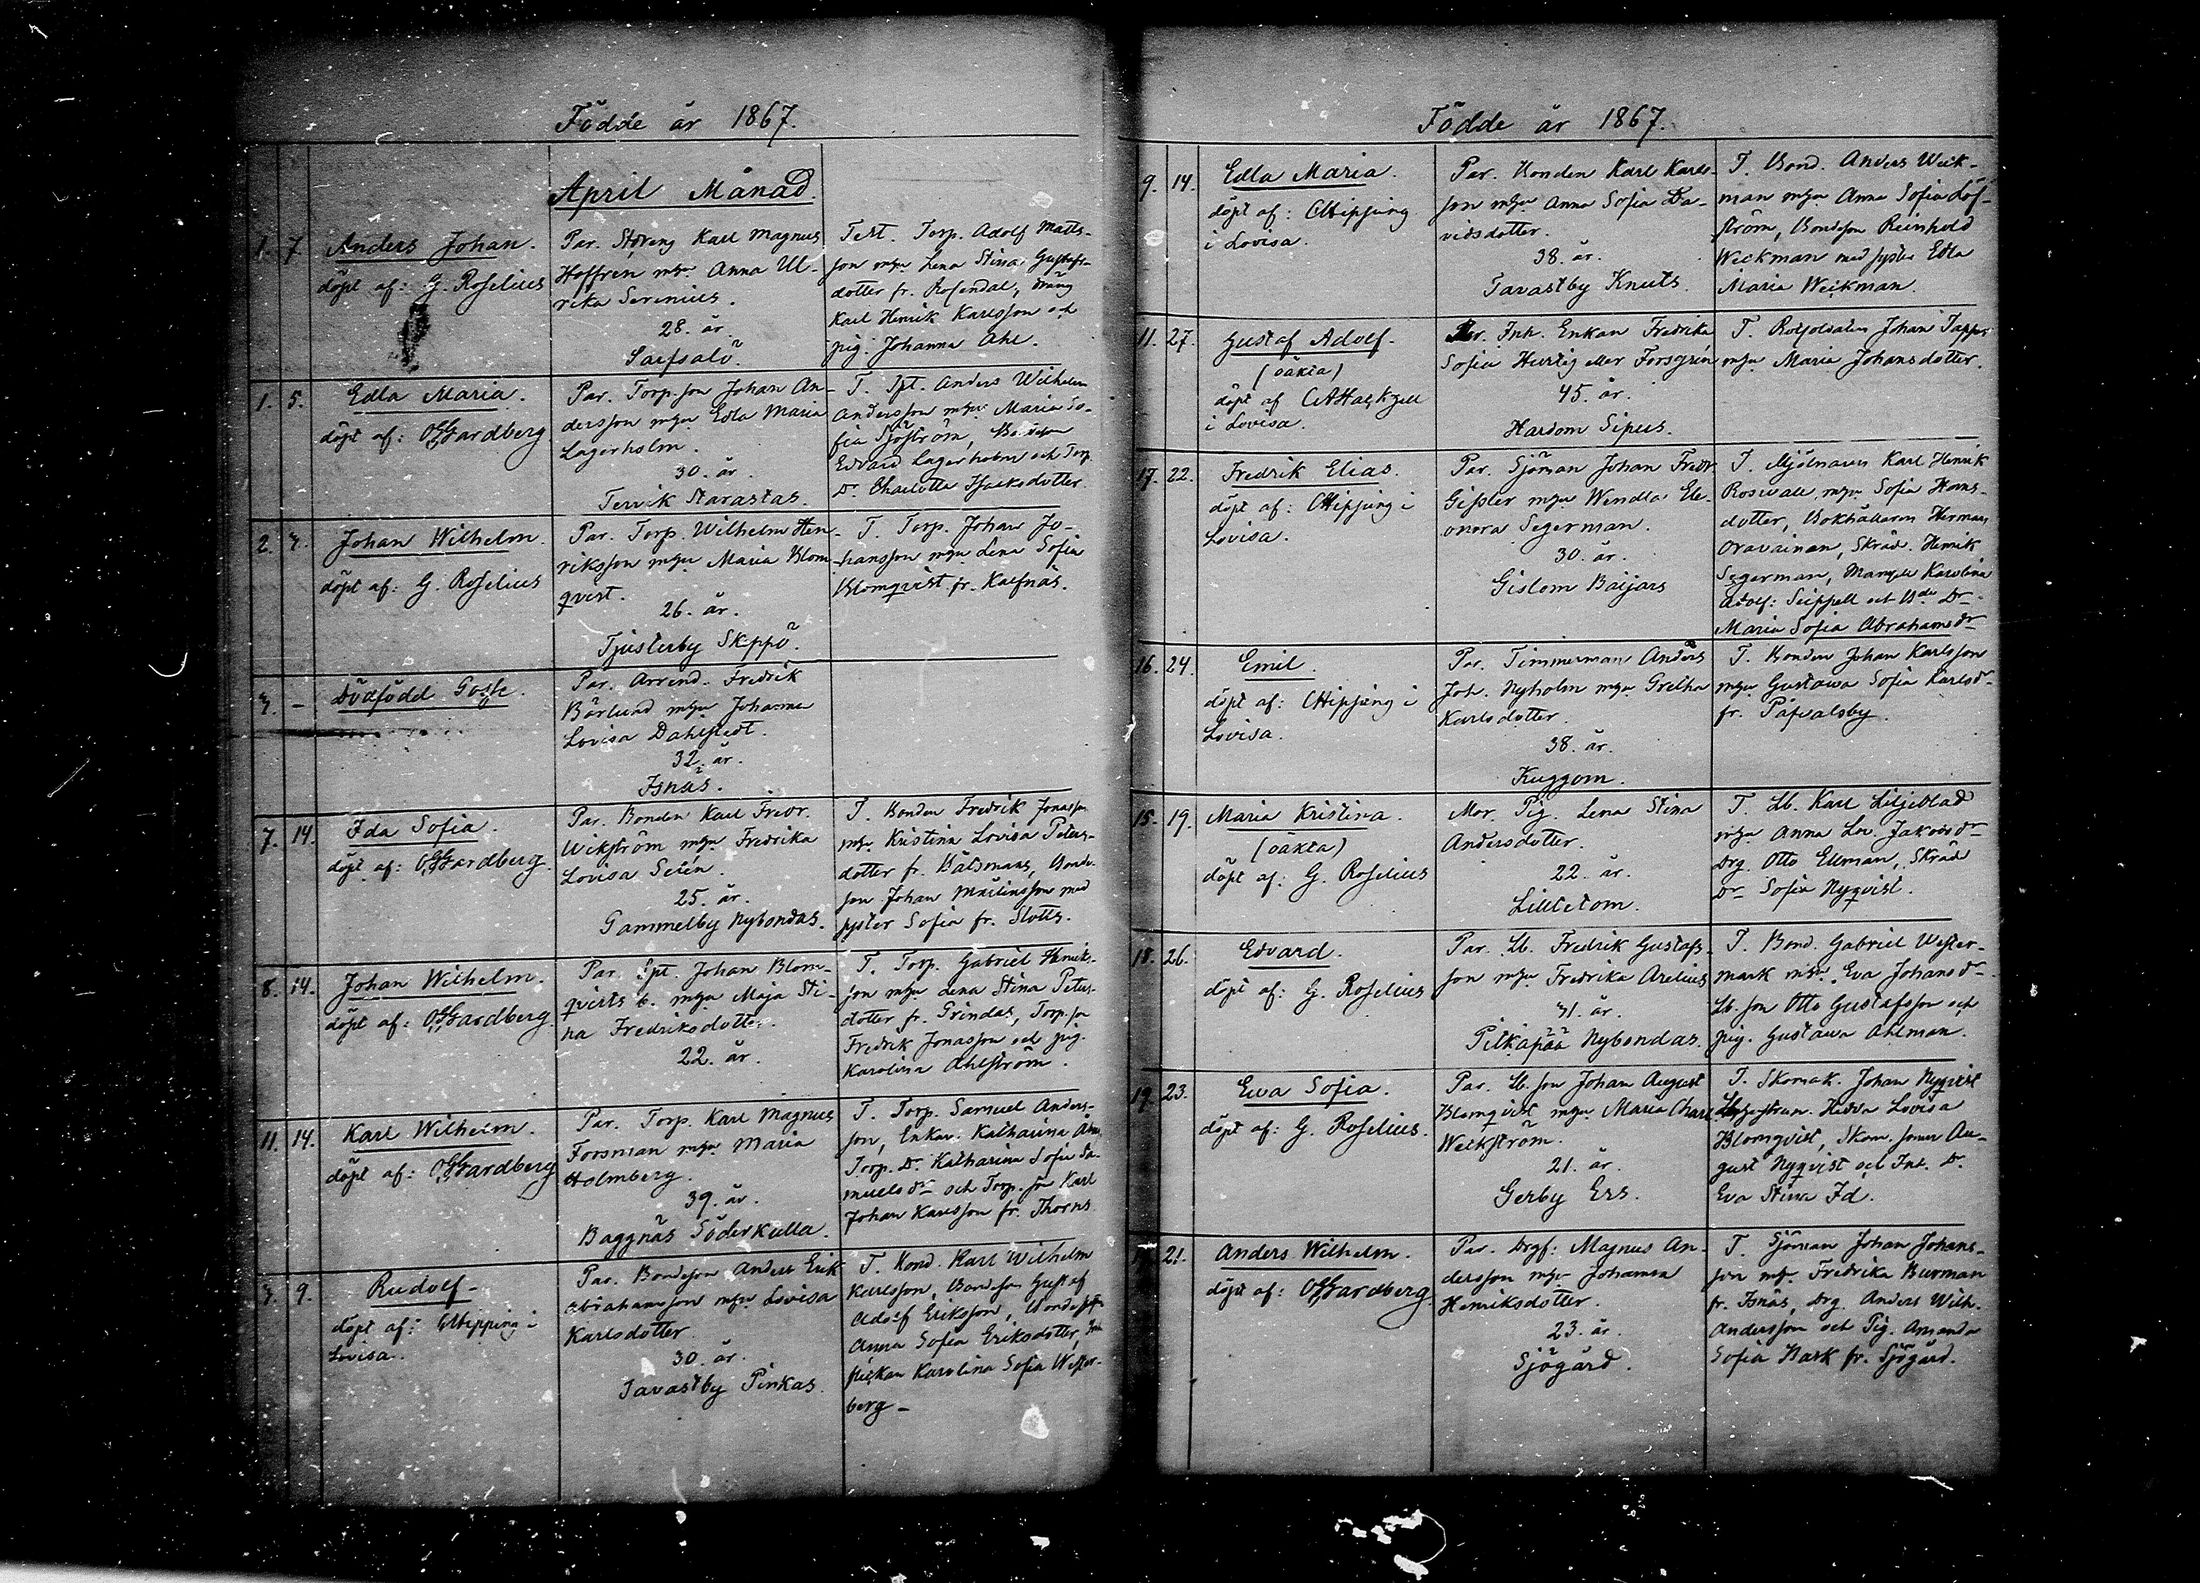 Födde år 1867.
April Månad.
1. 7. Anders Johan.
döpt af: G. Roselius
Par. Karl Magnus
Hoffrén mhu Anna Ul-
rika Serenius.
28. år.
Sarfsalö
Test. Torp. Adolf Matts-
son mhu Lena Stina Gustafs-
dotter fr. Rosendal, dräng
Karl Henrik Karlsson och
pig. Johanna Ahl.
1. 5. Edla Maria.
döpt af: Gardberg.
Par. Torp. son Johan An-
dersson mhu Edla Maria
Lagerholm.
30. år
Tervik Starastas.
T. Spt. Anders Wilhelm
Andersson mhu Maria So-
fia Sjöström,
Edvard Lagerholm och Torp.
Dr. Charlotta Isaksdotter
2. Johan Wilhelm.
döpt af: G. Roselius
Par. Torp. Wilhelm Hen-
riksson mhu Maria Blom-
qvist.
26. år.
Tjusterby Skeppö.
T. Torp. Johan Jo-
hansson mhu Lena Sofia
Blomqvist fr. Kalfnäs.
– Dödfödd Gosse.
Par. Arrend. Fredrik
Bärlund mhu Johanna
Lovisa Dahlstedt.
32. år.
Isnäs.
7. 14. Ida Sofia.
döpt af: Gardberg.
Par. Bonden Karl Fredr.
Wikström mhu Fredrika
Lovisa Selén.
25. år.
Gammelby Nybondas.
T. Bonden Fredrik Jonasson
mhu Kristina Lovisa Peters-
dotter fr. Båtsmans, Bonde-
son Johan Mårtensson med
syster Sofia fr. Slotts.
8. 14. Johan Wilhelm.
döpt af: Gardberg.
Par. Spt. Johan Blom-
qvists mhu Maja Sti-
na Fredriksdotter.
22. år.
T. Torp. Gabriel Henriks-
son mhu Lena Stina Peters-
dotter fr. Grindas, Torp. son
Fredrik Jonasson och pig.
Karolina Ahlström.
11. 14. Karl Wilhelm.
döpt af: Gardberg
Par. Torp. Karl Magnus
Forsman mhu Maria
Holmberg.
39. år.
Baggnäs Söderkulla.
T. Torp. Samuel Anders-
son, Enkan Katharina
Torp. Dr. Katharina Sofia Sa-
muelsdr och Torp. son Karl
Johan Karlsson fr. Thorns
9. Rudolf –
döpt af: Hipping i
Lovisa.
Par. Bondeson Anders Erik
Abrahamsson mhu Lovisa
Karlsdotter
30. år.
Tavastby Pinkas.
T. Bond. Karl Wilhelm
Karlsson, Bondeson Gustaf
Adolf Eriksson,
Anna Sofia Eriksdotter,
flickan Karolina Sofia Wester-
berg –
Födde år 1867.
9. 14. Edla Maria.
döpt af: Hipping
i Lovisa.
Par. Bonden Karl Karls-
son mhu Anna Sofia Da-
vidsdotter.
38. år.
Tavastby Knuts.
T. Bond. Anders Weck-
man mhu Anna Sofia Löf-
ström, Bondeson Reinhold
Weckman med syster Edla
Maria Weckman.
11. 27. Gustaf Adolf.
(oäkta)
döpt af
i Lovisa.
Inh. Enkan Fredrika
Sofia Hurtig eller Forsgrén
45. år.
Hardom Sipus.
T. Johan
mhu Maria Johansdotter.
17. 22. Fredrik Elias.
döpt af: Hipping i
Lovisa.
Par. Sjöman Johan Fredr.
Gissler mhu Wendla Ele-
onora Segerman.
30. år.
Gislom Baijars
T. Mjölnaren Karl Henrik
Rosvall, mhu Sofia Hans-
dotter, Bokhållaren Herman
Oravainen, Skräd. Henrik
Segerman, Karolina
Adolf: och Dr
Maria Sofia Abrahamsdr
16. 24. Emil.
döpt af: Hipping i
Lovisa.
Par. Timmerman Anders
Joh. Nyholm mhu Gretha
Karlsdotter.
38. år.
Kuggom.
T. Bonden Johan Karlsson
mhu Gustawa Sofia Karlsdr
fr. Påvalsby.
15. 19. Maria Kristina.
(oäkta)
döpt af: G. Roselius
Mor. Pig. Lena Stina
Andersdotter.
22. år.
Lilletom.
T. Lb. Karl Liljeblad
mhu Anna Lov. Jakobsdr
Drg. Otto Ekman, Skräd
Dr Sofia Nyqvist.
18. 26. Edvard.
döpt af: G. Roselius
Par. Lb. Fredrik Gustafs-
son mhu Fredrika Arelius
31. år.
Pitkäpää Nybondas.
T. Bond. Gabriel Wester-
mark mhu Eva Johansdr
Lb. son Otto Gustafsson och
pig. Gustawa Ahlman.
19. 23. Eva Sofia.
döpt af: G. Roselius.
Par. Lb. son Johan August
Blomqvist mhu Maria Charl.
Weckström.
21. år.
Gerby Ers.
T. Skomak. Johan Nyqvist
Hedda Lovisa
Blomqvist, Skom. sonen Au-
gust Nyqvist och Inh. Dr.
Eva Stina Id.
21. Anders Wilhelm.
döpt af: Gardberg.
Par. Drgf: Magnus An-
dersson mhu Johanna
Henriksdotter.
23. år.
Sjögård.
T. Sjöman Johan Johans-
son mhu Fredrika Burman
fr. Isnäs, Drg. Anders Wilh.
Andersson och Pig. Amanda
Sofia Bark fr. Sjögård.